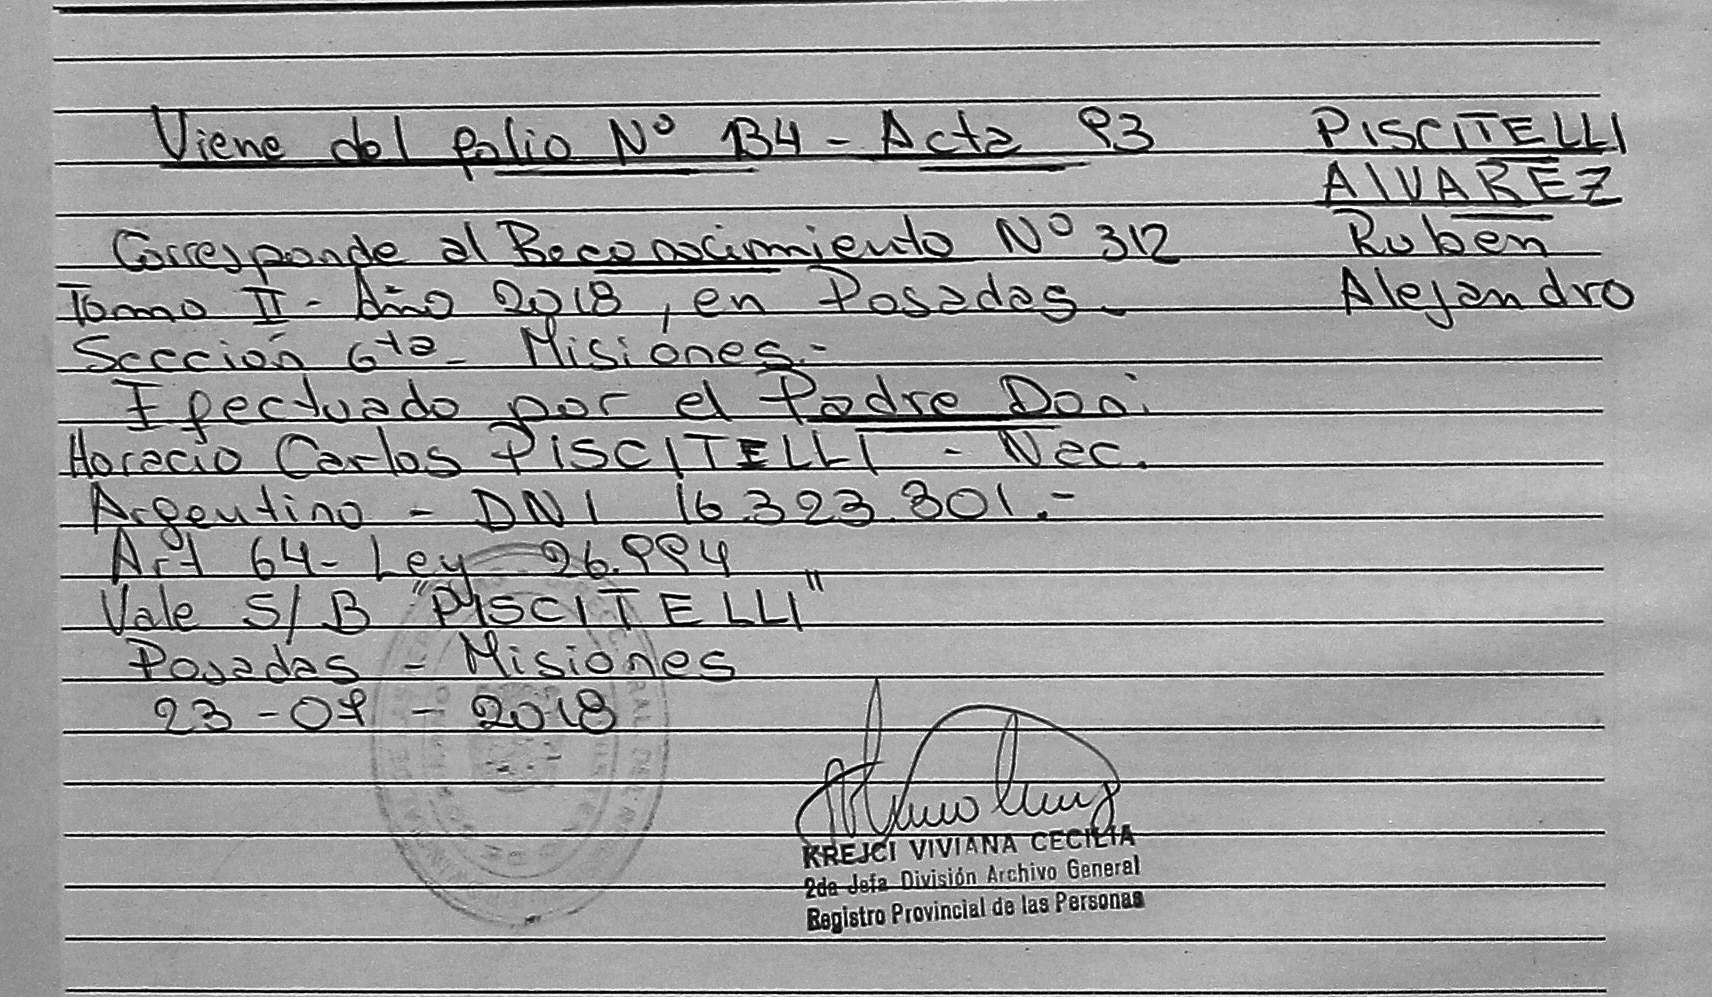 Viene del folio Nº 134 - Acta 93
Corresponde al Reconocimiento Nº 312
Tomo II - Año 2018, en Posadas.
Sección 6ta - Misiones.-
Efectuado por el Padre Don:
Horacio Carlos PISCITELLI - Nac.
Argentino - DNI 16.323.801.-
Art 64 - Ley 26.994
Vale S/B "PISCITELLI"
Posadas - Misiones
23 - 07 - 2018
PISCITELLI
ALVAREZ
Ruben
Alejandro
KREJCI VIVIANA CECILIA
2da Jefa División Archivo General
Registro Provincial de las Personas